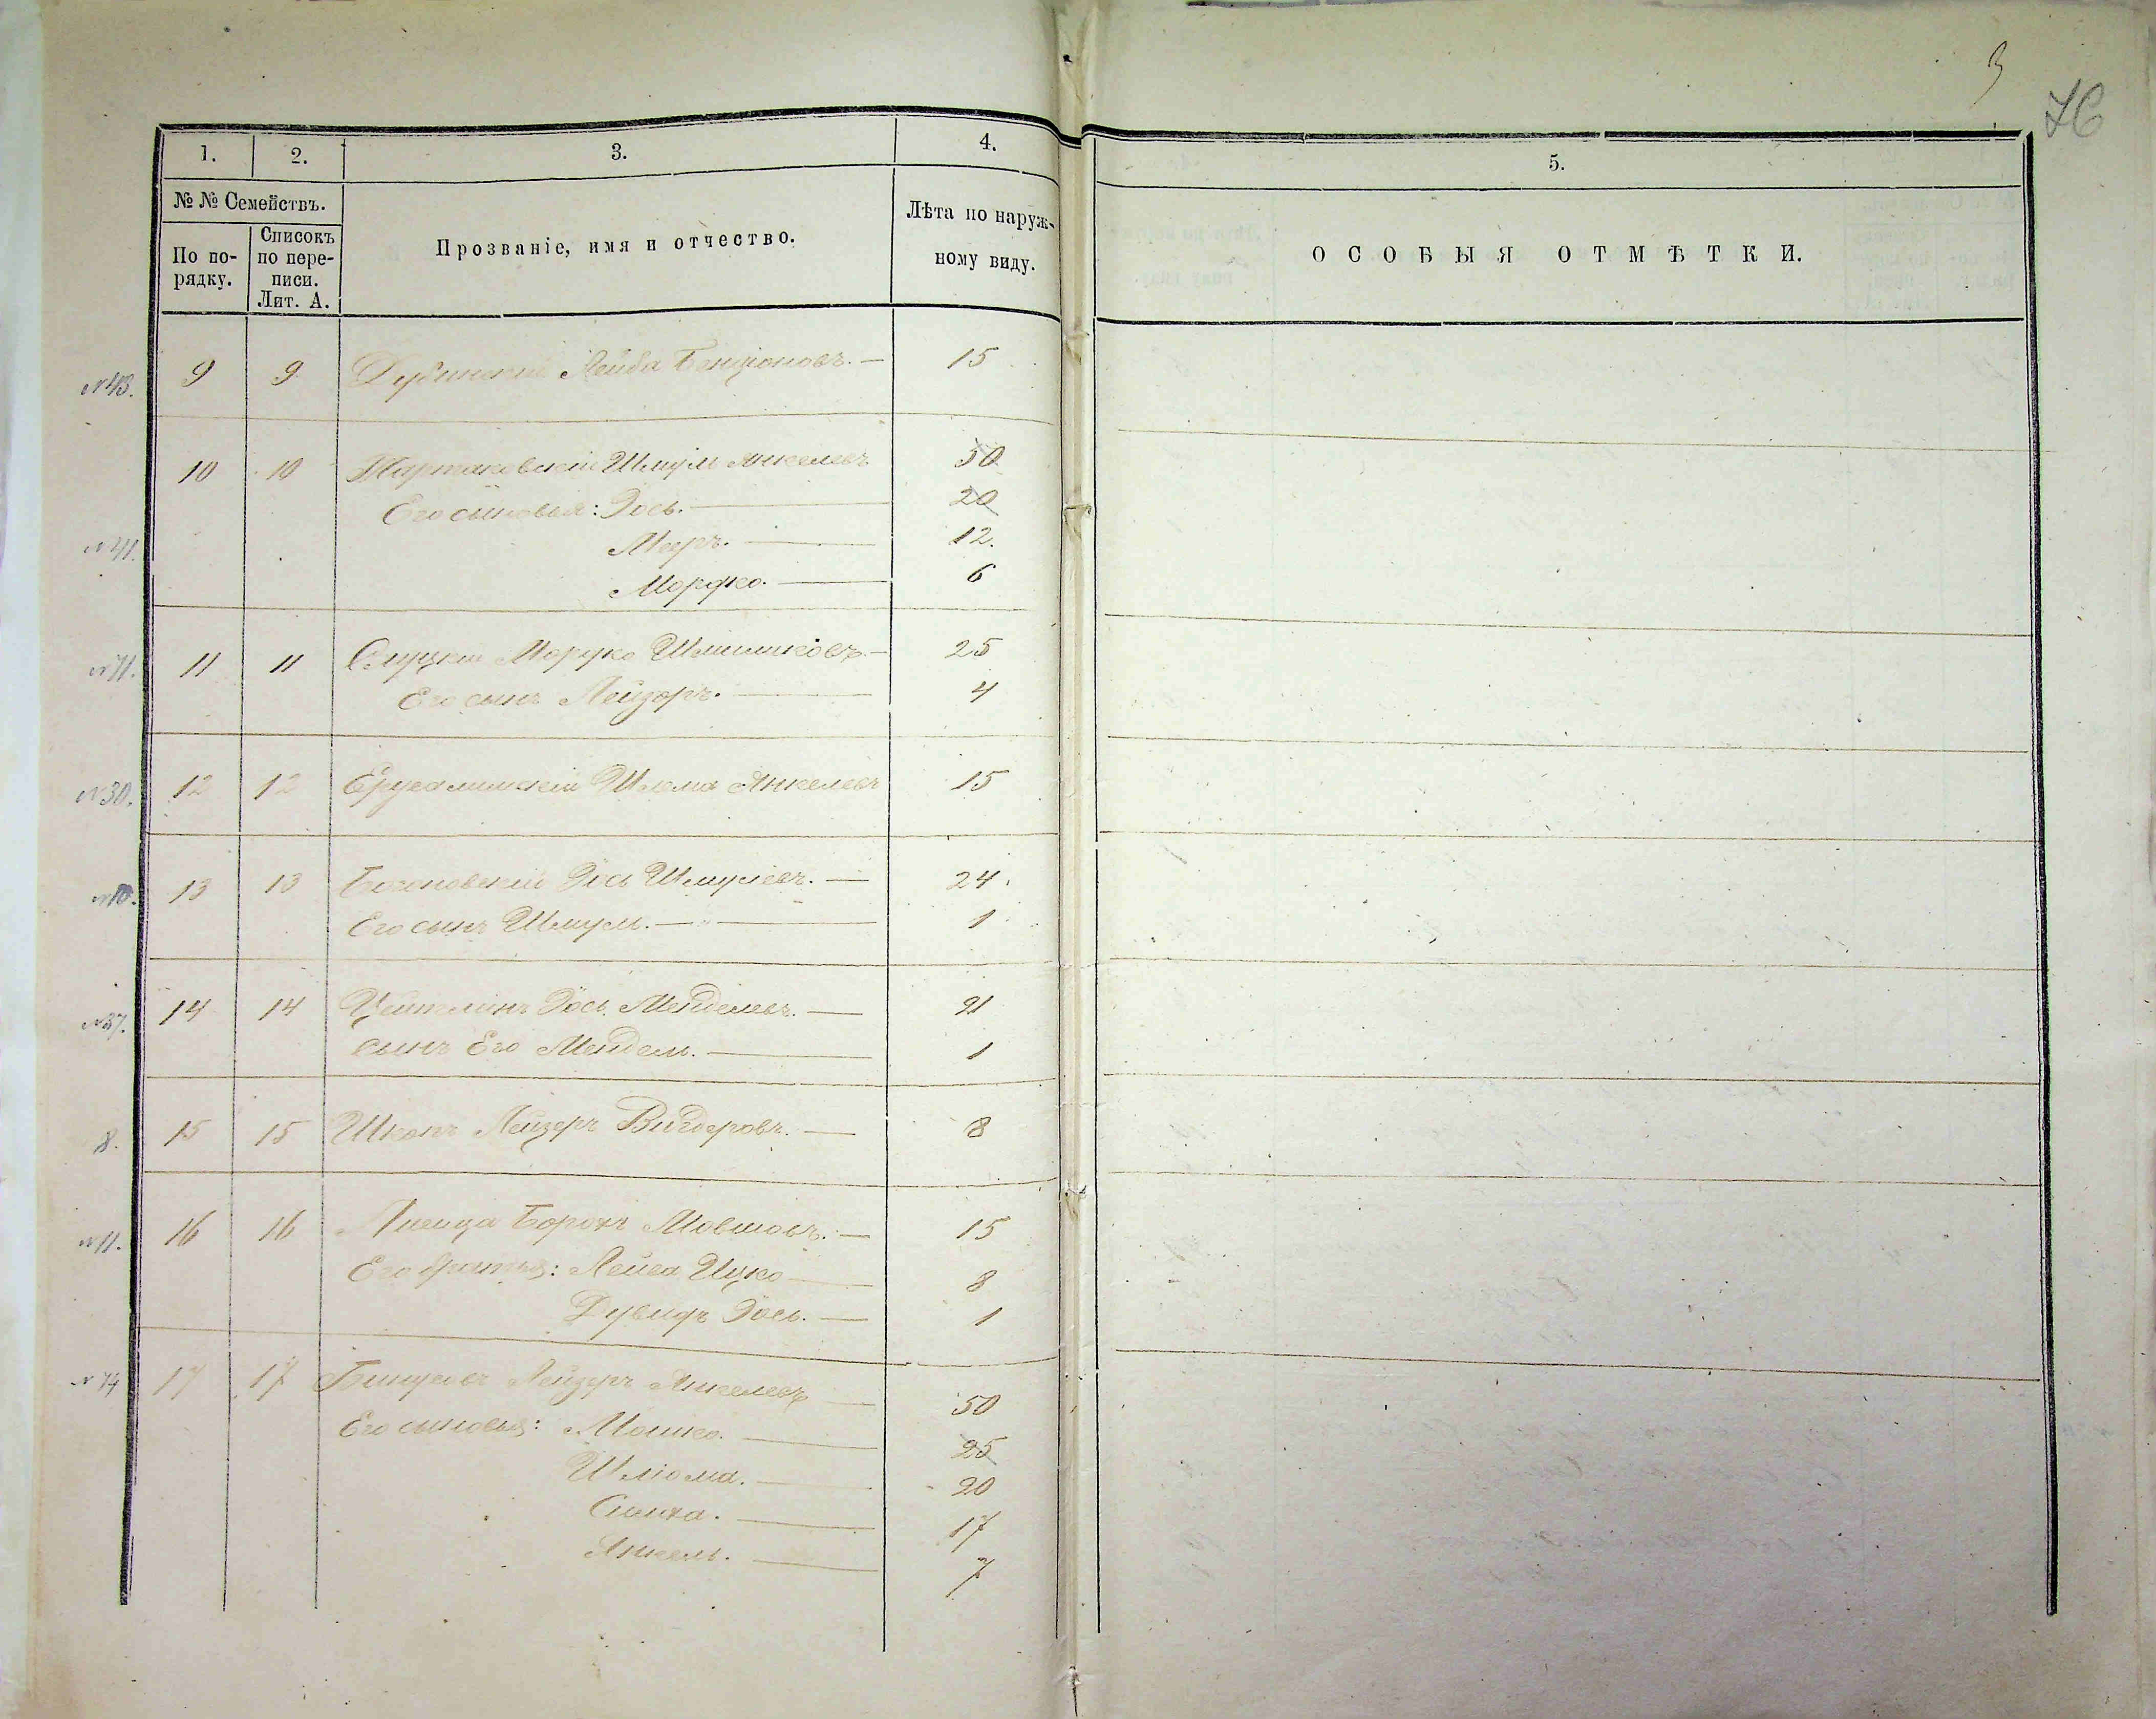 3
76
1. 2. 3. 4. 5.
№ № Семействъ.
По по-рядку.
Списокъ по пере-писи. Лит. А.
Прозваніе, имя и отчество.
Лѣта по наруж-ному виду.
ОСОБЫЯ ОТМѢТКИ.
№43. 9 9 Дубинскій Лейба Бенціоновъ. — 15
10 10 Шмуль Янкелевъ 50
Его сыновья: Іось. — 20
№41. Мееръ. — 12.
Мордко. — 6
№71. 11 11 Слуцкій Мордко — 25
Его сынъ Лейзоръ. — 4
№30. 12 12 Ерусалимскій Шлема Янкелевъ 15
№10. 13 13 Іось Шмулевъ. — 24
Его сынъ Шмуль. — 1
№37. 14 14 Цейтлинъ Іось Менделевъ. — 21
сынъ Его Мендель. — 1
8. 15 15 Лейзеръ Вигдоровъ. — 8
№11. 16 16 Борохъ Мовшовъ. — 15
Его братья: Лейба Ицко — 8
Дувидъ Іось. — 1
№74 17 17 Лейзеръ Янкелевъ — 50
Его сыновья: Мошко. — 25
Шліома. — 20
Симха. — 17
Янкель. — 7